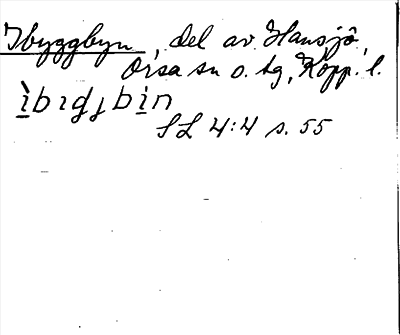 Ibyggbyn, del av Hansjö,
Orsa sn o. tg, Kopp. l.
ìbıdȷbin
SL 4:4 s. 55